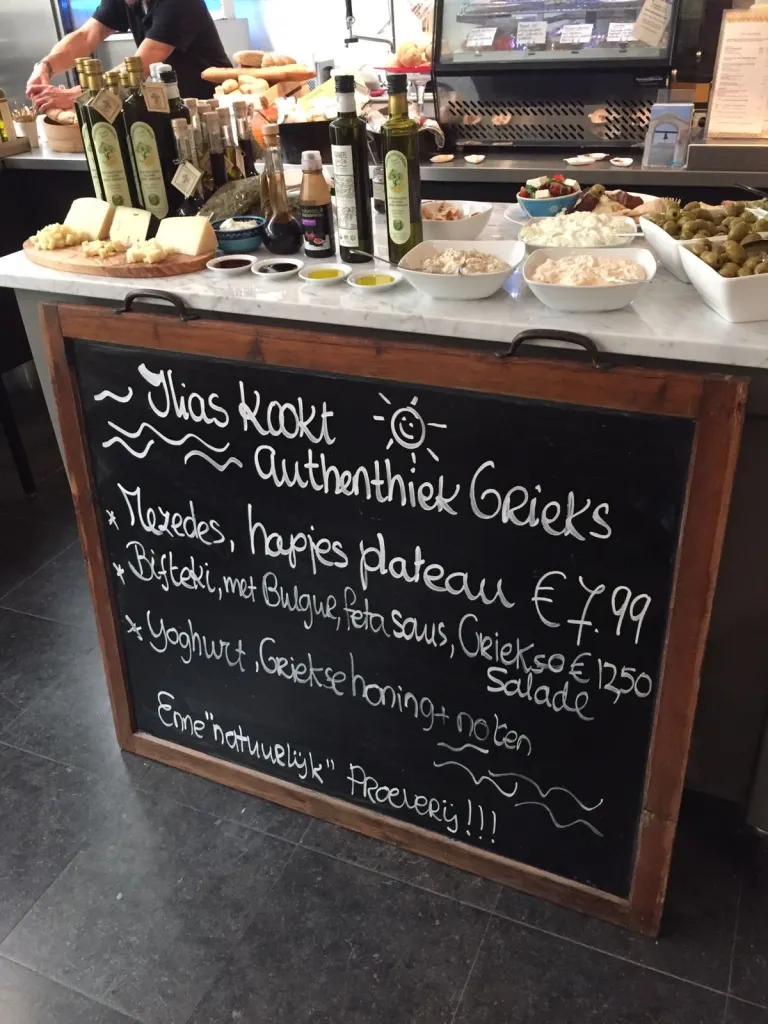 Ilias Kookt
authenthiek Grieks
* Mezedes, hapjes plateau €7.99
* Bifteki, met Bulgur, feta saus, Griekse € 12,50
Salade
* Yoghurt, Griekse honing + noten
Enne "natuurlijk" Proeverij!!!